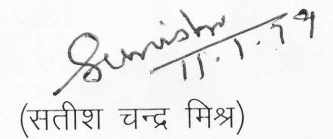 11.1.79
(सतीश चन्द्र मिश्र)